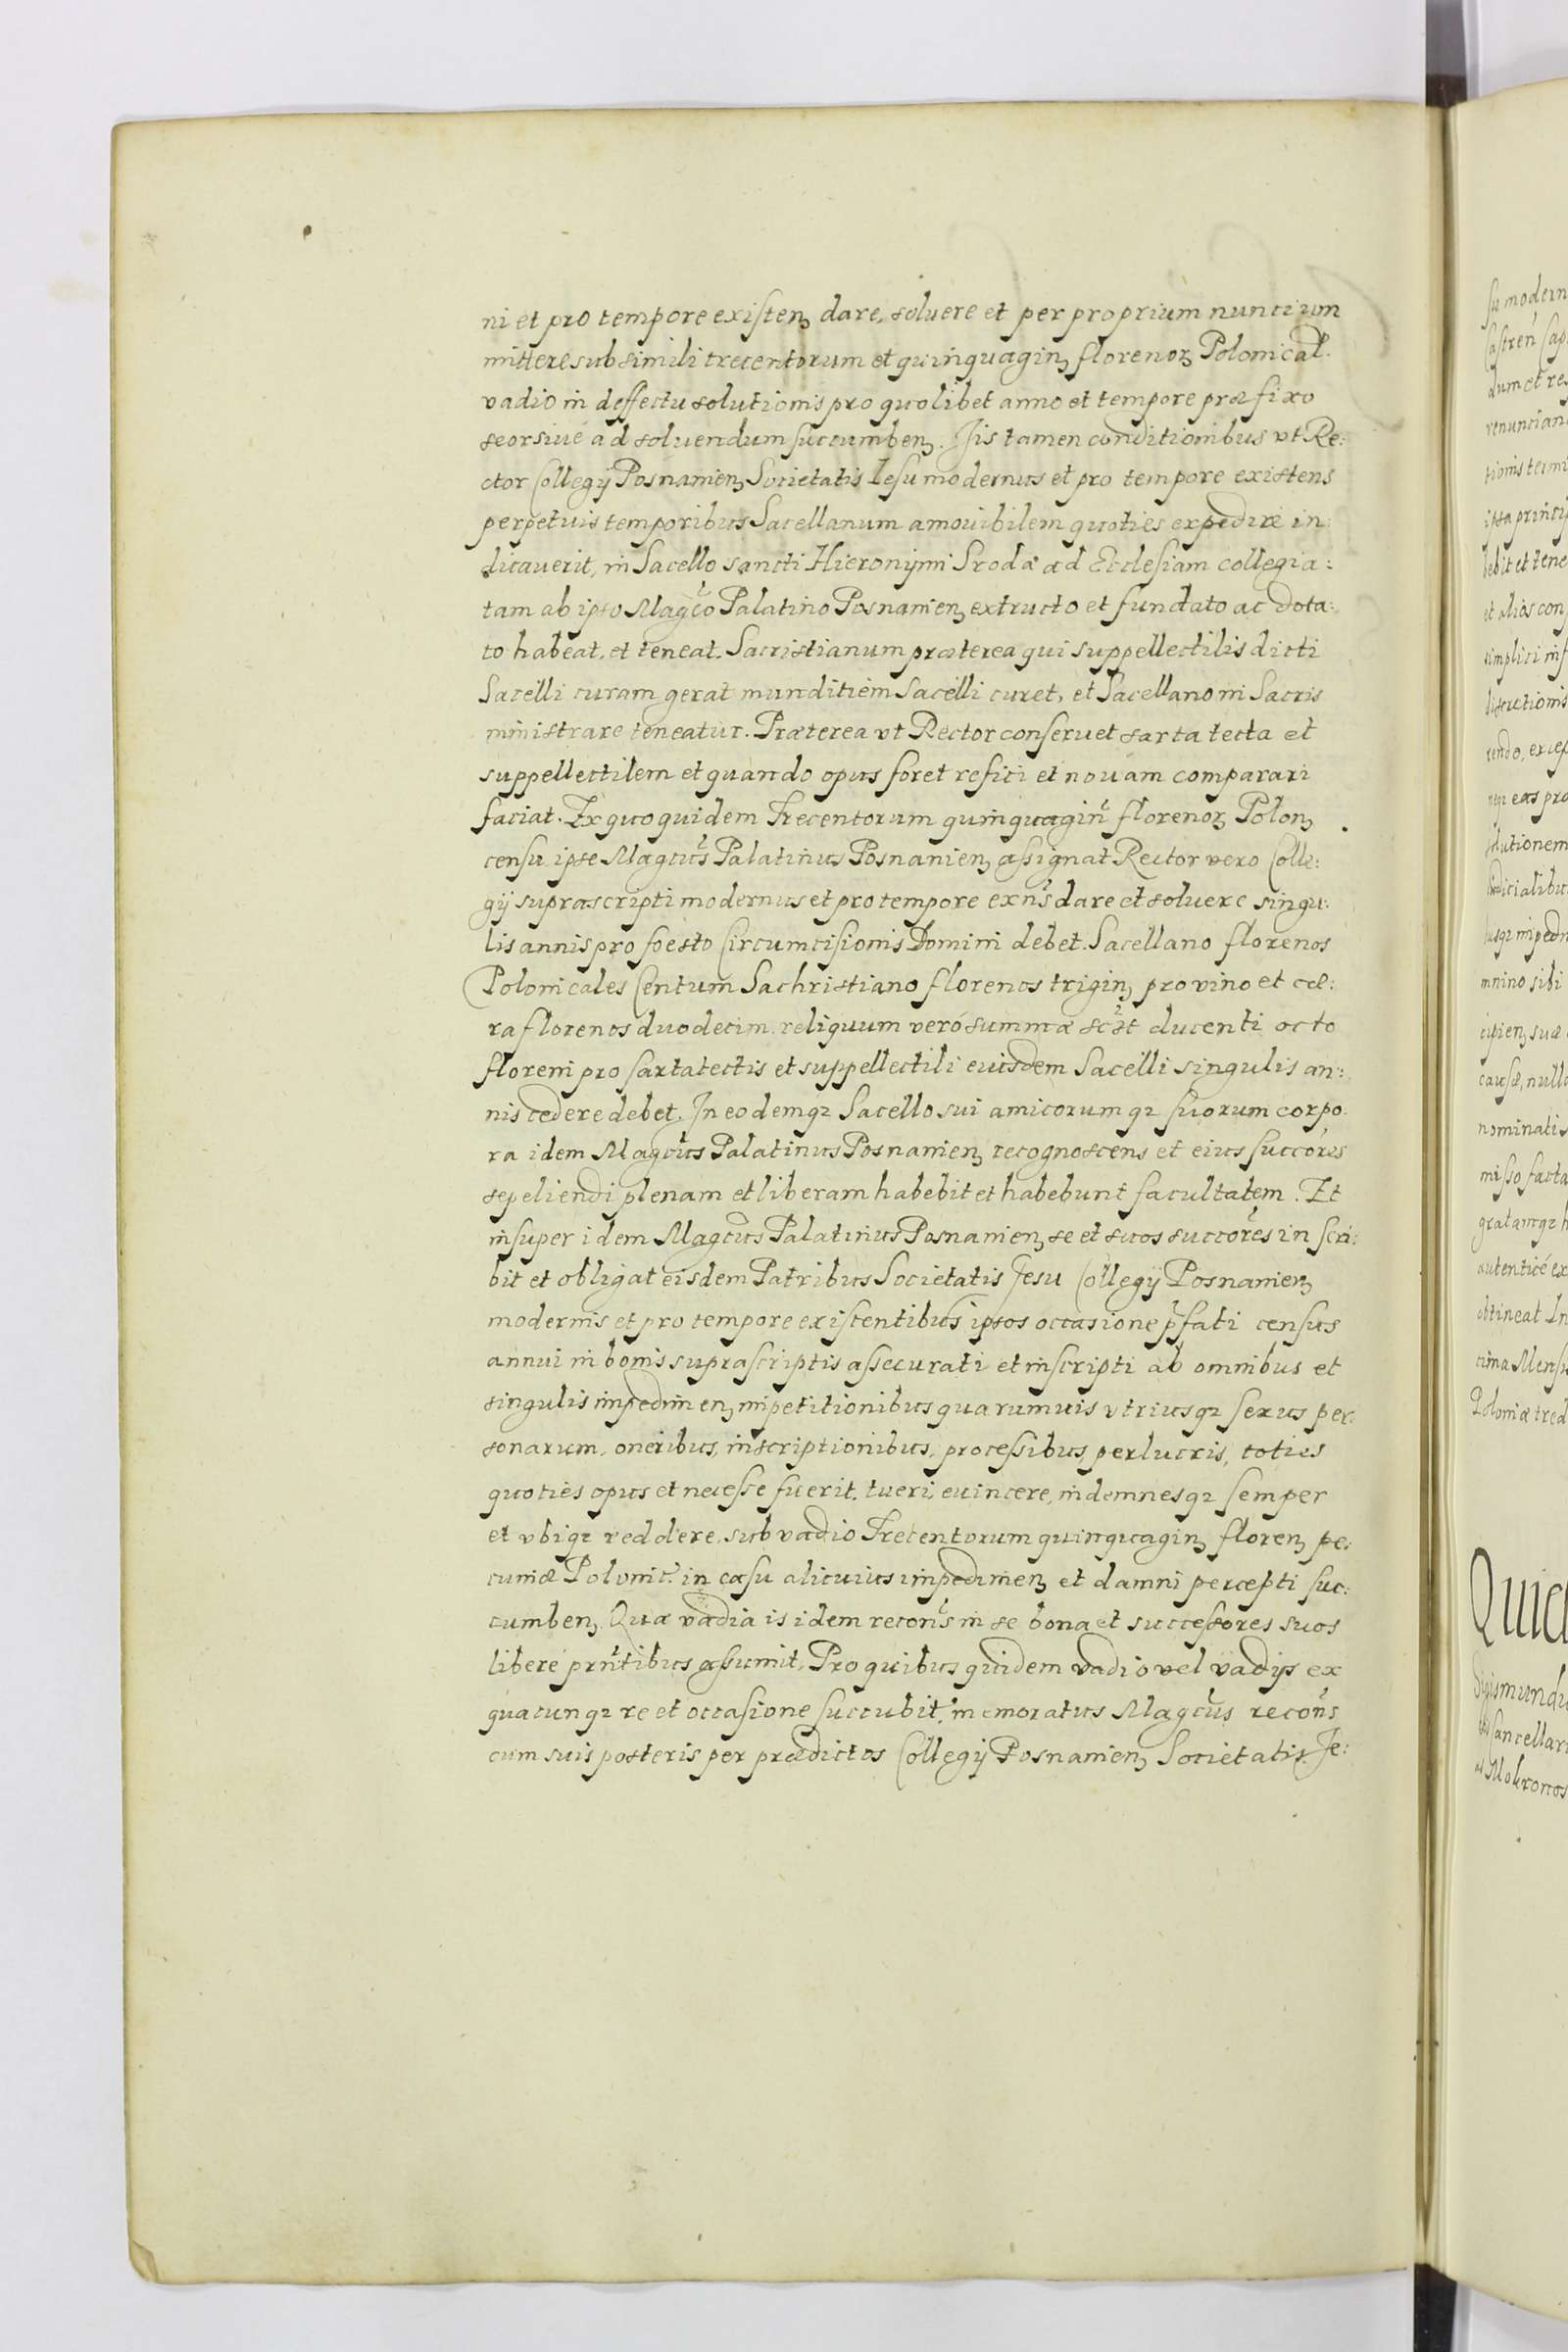 ni et pro tempore existenꝫ dare, soluere et per proprium nuncium
mittere sub simili trecentorum et quinquaginꝫ florenoꝝ Polonical.
vadio in deffectu solutionis pro quolibet anno et tempore præfixo
seorsiue ad soluendum succumbenꝫ. Iis tamen conditionibus vt Re:
ctor Collegij Posnanienꝫ Societatis Iesu modernus et pro tempore existens
perpetuis temporibus Sacellanum amouibilem quoties expedire in:
dicauerit, in Sacello sancti Hieronymi Srodæ ad Ecclesiam collegia:
tam ab ipso Magco Palatino Posnanienꝫ extructo et fundato ac dota:
to habeat, et teneat. Sacristianum præterea qui suppellectilis dicti
Sacelli curam gerat munditiem Sacelli curet, et Sacellano in Sacris
ministrare teneatur. Præterea vt Rector conseruet sarta tecta et
suppellectilem et quando opus foret refici et nouam comparari
faciat. Ex quo quidem Trecentorum quinquagin florenoꝝ Polonꝫ
censu ipse Magcus Palatinus Posnanienꝫ assignat Rector vero Colle:
gij suprascripti modernus et pro tempore exns dare et soluere singu:
lis annis pro foesto Circumcisionis Domini debet. Sacellano florenos
Polonicales Centum Sachristiano florenos triginꝫ pro vino et cæ:
ra florenos duodecim, reliquum veró summæ sclt ducenti octo
floreni pro sartatectis et suppellectili eiusdem Sacelli singulis an:
nis cedere debet. In eodemqꝫ Sacello sui amicorumqꝫ suorum corpo:
ra idem Magcus Palatinus Posnanienꝫ recognoscens et eius succores
sepeliendi plenam et liberam habebit et habebunt facultatem. Et
insuper idem Magcus Palatinus Posnanienꝫ se et suos succores inscri:
bit et obligat eisdem Patribus Societatis Jesu Collegij Posnanienꝫ
modernis et pro tempore existentibus ipsos occasione pfati census
annui in bonis suprascriptis assecurati et inscripti ab omnibus et
singulis impedimenꝫ impetitionibus quarumuis vtriusqꝫ sexus per:
sonarum, oneribus, inscriptionibus, processibus, perlucris, toties
quoties opus et necesse fuerit, tueri, euincere, indemnesqꝫ semper
et vbiqꝫ reddere, sub vadio Trecentorum quinquaginꝫ florenꝫ pe:
cuniæ Polonic. in casu alicuius impedimenꝫ et damni percepti suc:
cumbenꝫ. Quæ vadia is idem recons in se bona et successores suos
libere prntibus assumit, Pro quibus quidem vadio vel vadijs ex
quacunqꝫ re et occasione succubit, memoratus Magcus recons
cum suis posteris per prædictos Collegij Posnanienꝫ Societatis Je:
su modern
dum et re
renuncian
tionis termi
bebit et tene
et alias con
simplici inf
eas pro
solutionem
mnino sibi
nominati
misso facta
autenticé ex
obtineat In
Poloniæ tred
Quia
Sigismundu
Cancellari